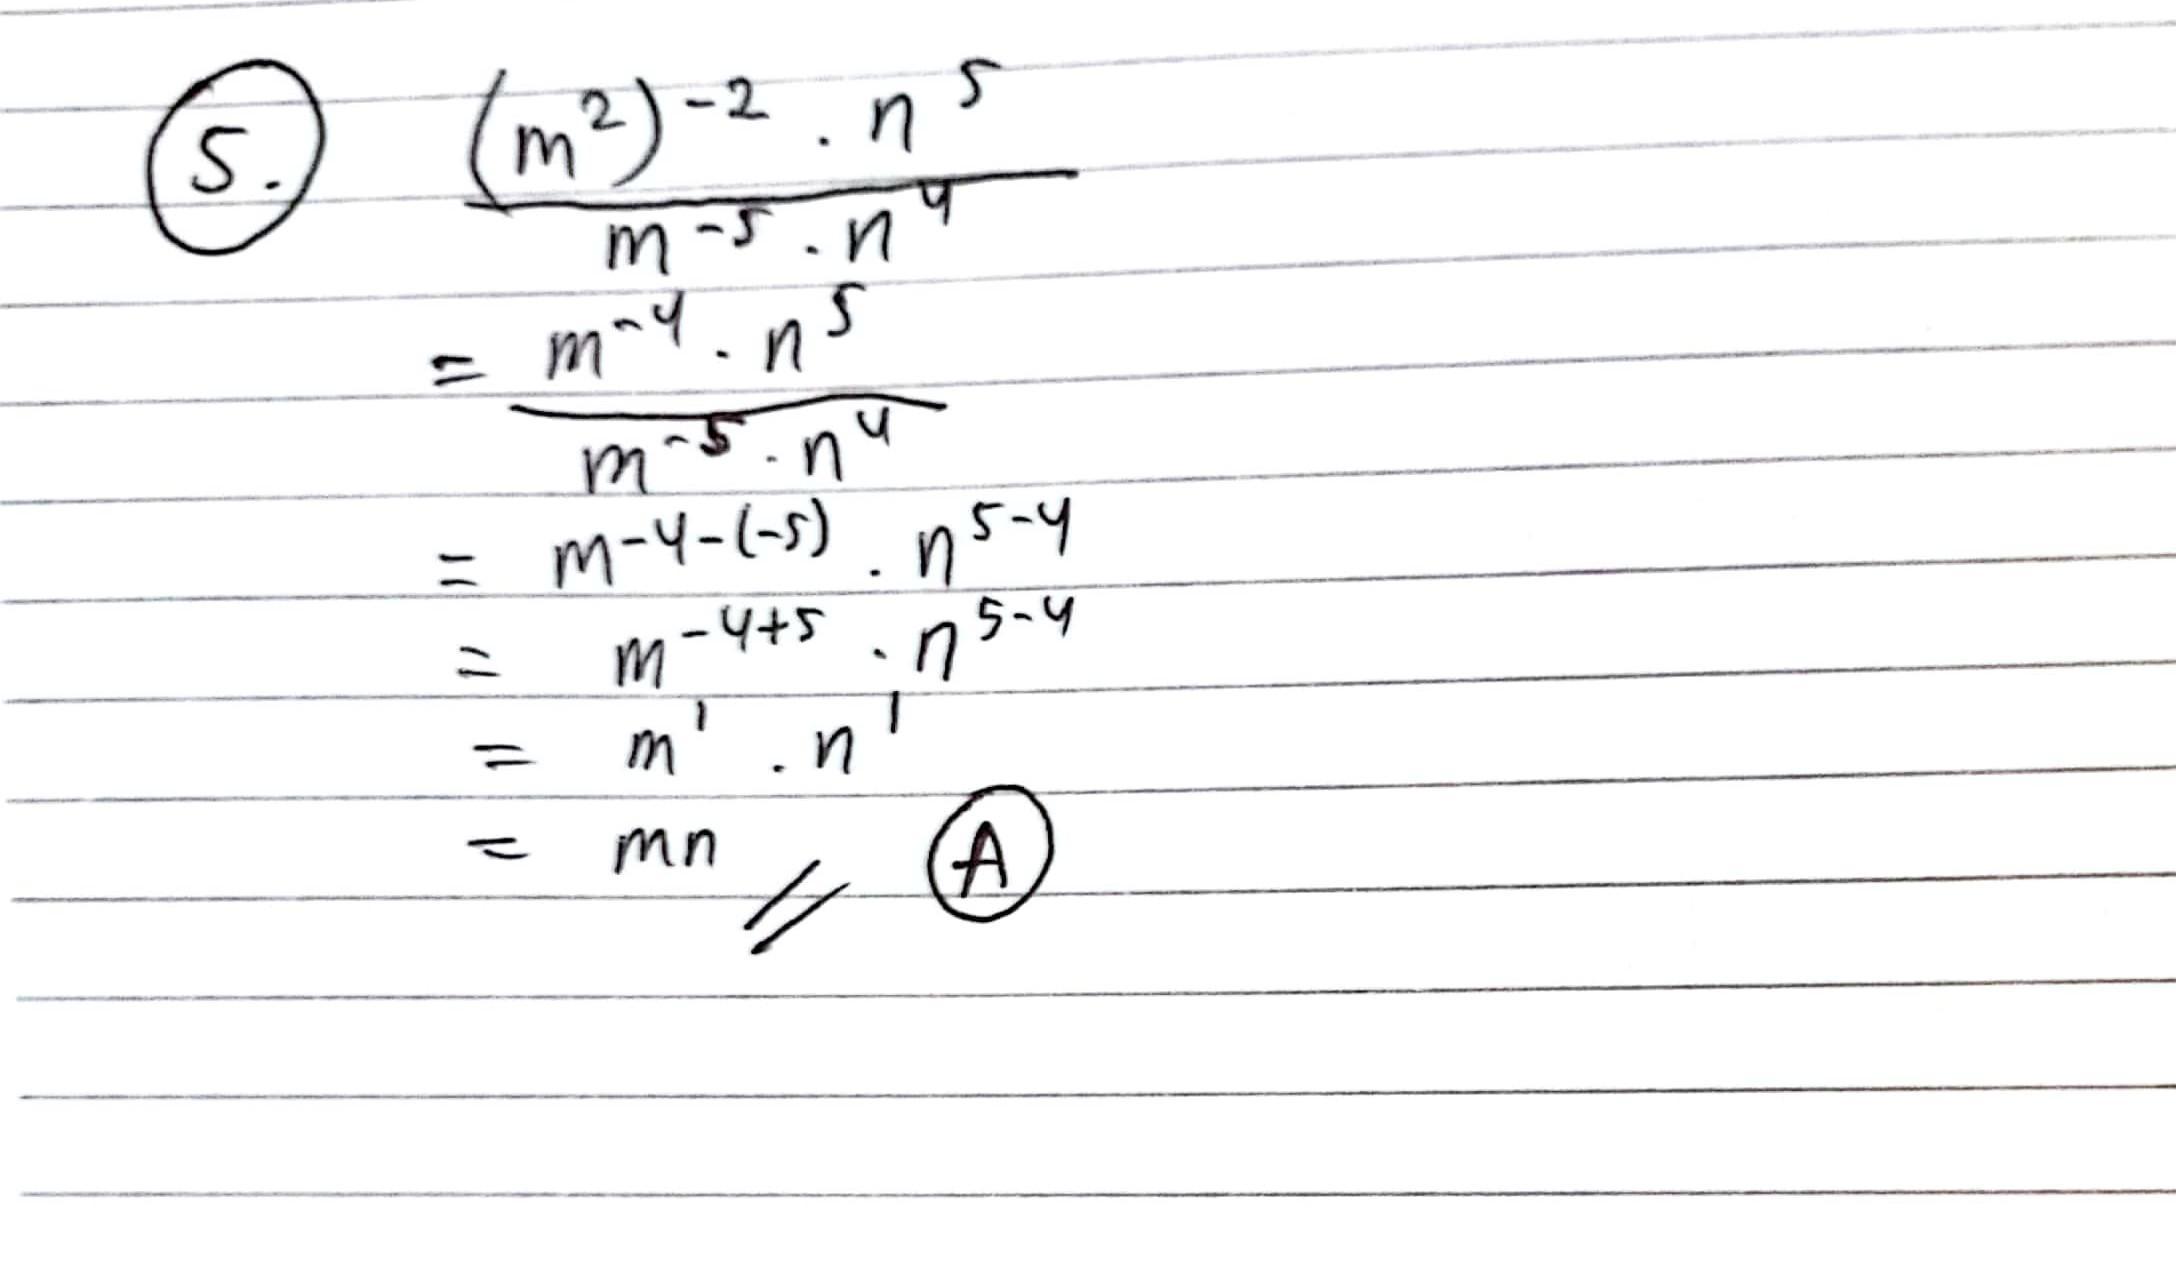 5. (m²)⁻² · n⁵
m⁻⁵ · n⁴
= m⁻⁴ · n⁵
m⁻⁵ · n⁴
= m⁻⁴⁻⁽⁻⁵⁾ · n⁵⁻⁴
= m⁻⁴⁺⁵ · n⁵⁻⁴
= m¹ · n¹
= mn // A